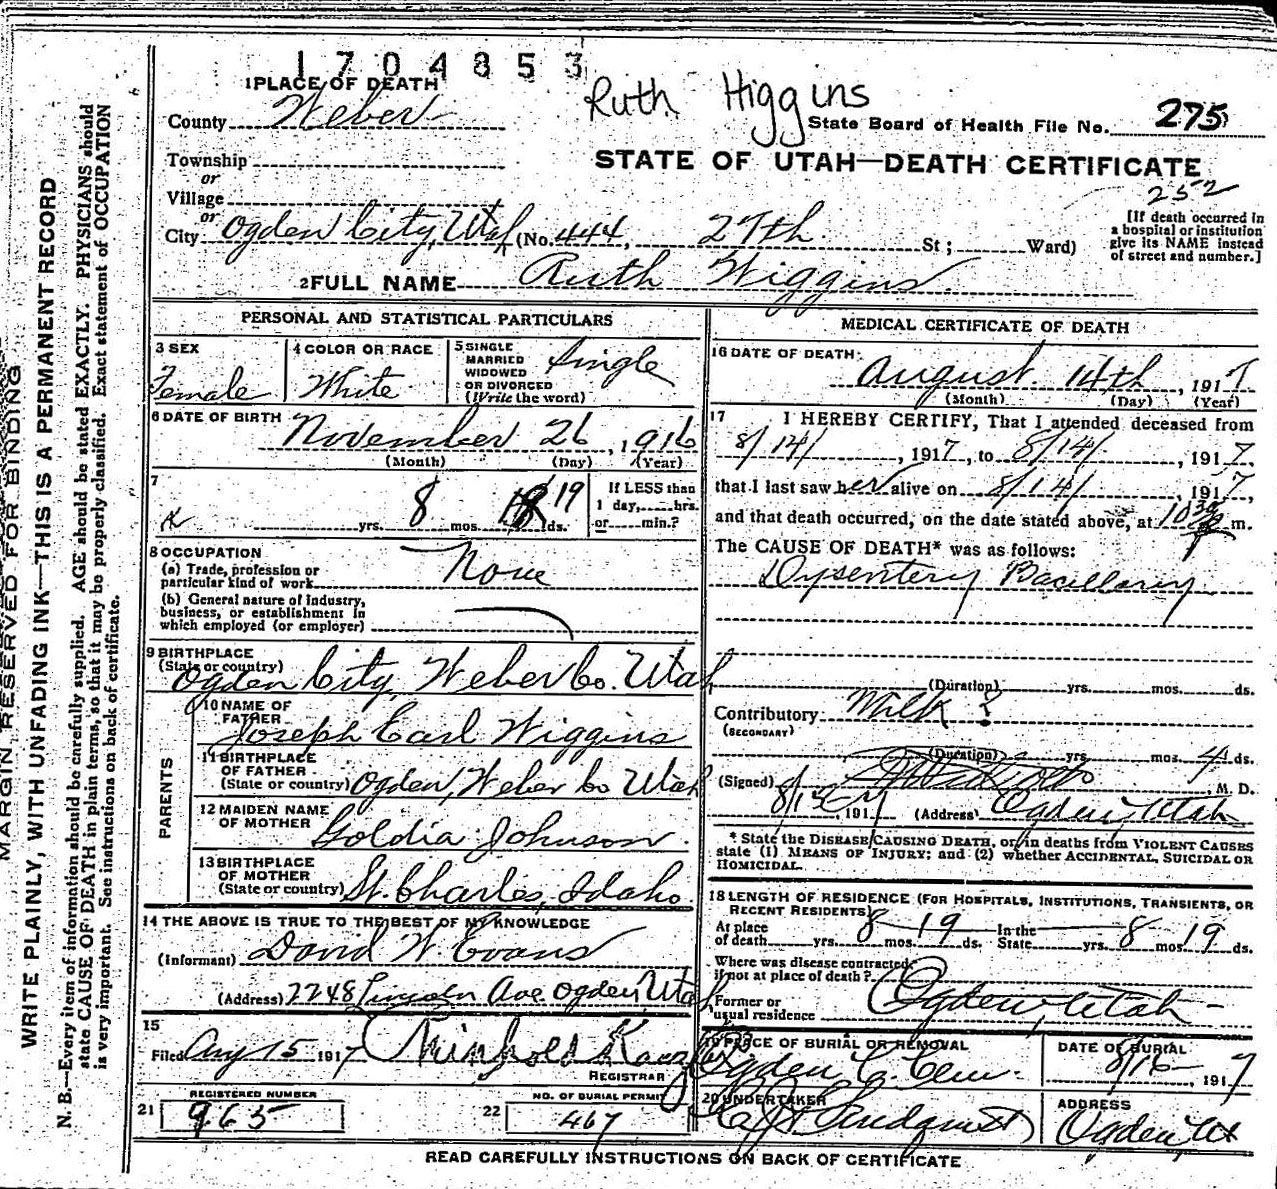 1704853
Ruth Higgins
1 PLACE OF DEATH
County Weber
State Board of Health File No. 275
Township
or
STATE OF UTAH—DEATH CERTIFICATE
252
Village
or
City Ogden City, Utah (No. 444, 27th St; Ward)
[If death occurred in
a hospital or institution
give its NAME instead
of street and number.]
2 FULL NAME Ruth Wiggins
PERSONAL AND STATISTICAL PARTICULARS
3 SEX
Female
4 COLOR OR RACE
White
5 SINGLE
MARRIED
WIDOWED
OR DIVORCED
(Write the word)
Single
6 DATE OF BIRTH
November 26, 1916
(Month) (Day) (Year)
7
yrs. 8 mos. 19 ds.
If LESS than
1 day, hrs.
or min.?
8 OCCUPATION
(a) Trade, profession or
particular kind of work None
(b) General nature of industry,
business, or establishment in
which employed (or employer)
9 BIRTHPLACE
(State or country)
Ogden City, Weber Co. Utah
PARENTS
10 NAME OF
FATHER
Joseph Earl Wiggins
11 BIRTHPLACE
OF FATHER
(State or country) Ogden, Weber Co Utah
12 MAIDEN NAME
OF MOTHER
Goldia Johnson
13 BIRTHPLACE
OF MOTHER
(State or country) St. Charles, Idaho.
14 THE ABOVE IS TRUE TO THE BEST OF MY KNOWLEDGE
(Informant) David W. Evans
(Address) 2248 Lincoln Ave Ogden, Utah
15
Filed Aug 15 1917
REGISTRAR
21
REGISTERED NUMBER
965
22
NO. OF BURIAL PERMIT
467
MEDICAL CERTIFICATE OF DEATH
16 DATE OF DEATH:
August 14th, 1917
(Month) (Day) (Year)
17 I HEREBY CERTIFY, That I attended deceased from
8/14/, 1917, to 8/14/, 1917,
that I last saw her alive on 8/14/, 1917,
and that death occurred, on the date stated above, at 10 30 P m.
The CAUSE OF DEATH* was as follows:
Dysentery Bacillary
(Duration) yrs. mos. ds.
Contributory Milk ?
(SECONDARY)
(Duration) yrs. mos. 4 ds.
(Signed) M. D.
8/15, 1917 (Address) Ogden, Utah
* State the DISEASE CAUSING DEATH, or, in deaths from VIOLENT CAUSES
state (1) MEANS OF INJURY; and (2) whether ACCIDENTAL, SUICIDAL OR
HOMICIDAL.
18 LENGTH OF RESIDENCE (FOR HOSPITALS, INSTITUTIONS, TRANSIENTS, OR
RECENT RESIDENTS)
At place
of death yrs. 8 mos. 19 ds.
In the
State yrs. 8 mos. 19 ds.
Where was disease contracted,
if not at place of death?
Former or
usual residence Ogden, Utah
19 PLACE OF BURIAL OR REMOVAL
Ogden C. Cem.
DATE OF BURIAL
8/16, 1917
20 UNDERTAKER
Lindquist
ADDRESS
Ogden Ut
READ CAREFULLY INSTRUCTIONS ON BACK OF CERTIFICATE
MARGIN RESERVED FOR BINDING
WRITE PLAINLY, WITH UNFADING INK—THIS IS A PERMANENT RECORD
N. B.—Every item of information should be carefully supplied. AGE should be stated EXACTLY. PHYSICIANS should
state CAUSE OF DEATH in plain terms, so that it may be properly classified. Exact statement of OCCUPATION
is very important. See instructions on back of certificate.